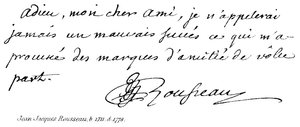 adieu, mon cher ami, je n'appelerai
jamais un mauvais succès ce qui m'a
procuré des marques d'amitié de vôtre
part.
JJRousseau
Jean-Jacques Rousseau, b. 1712 d. 1778.